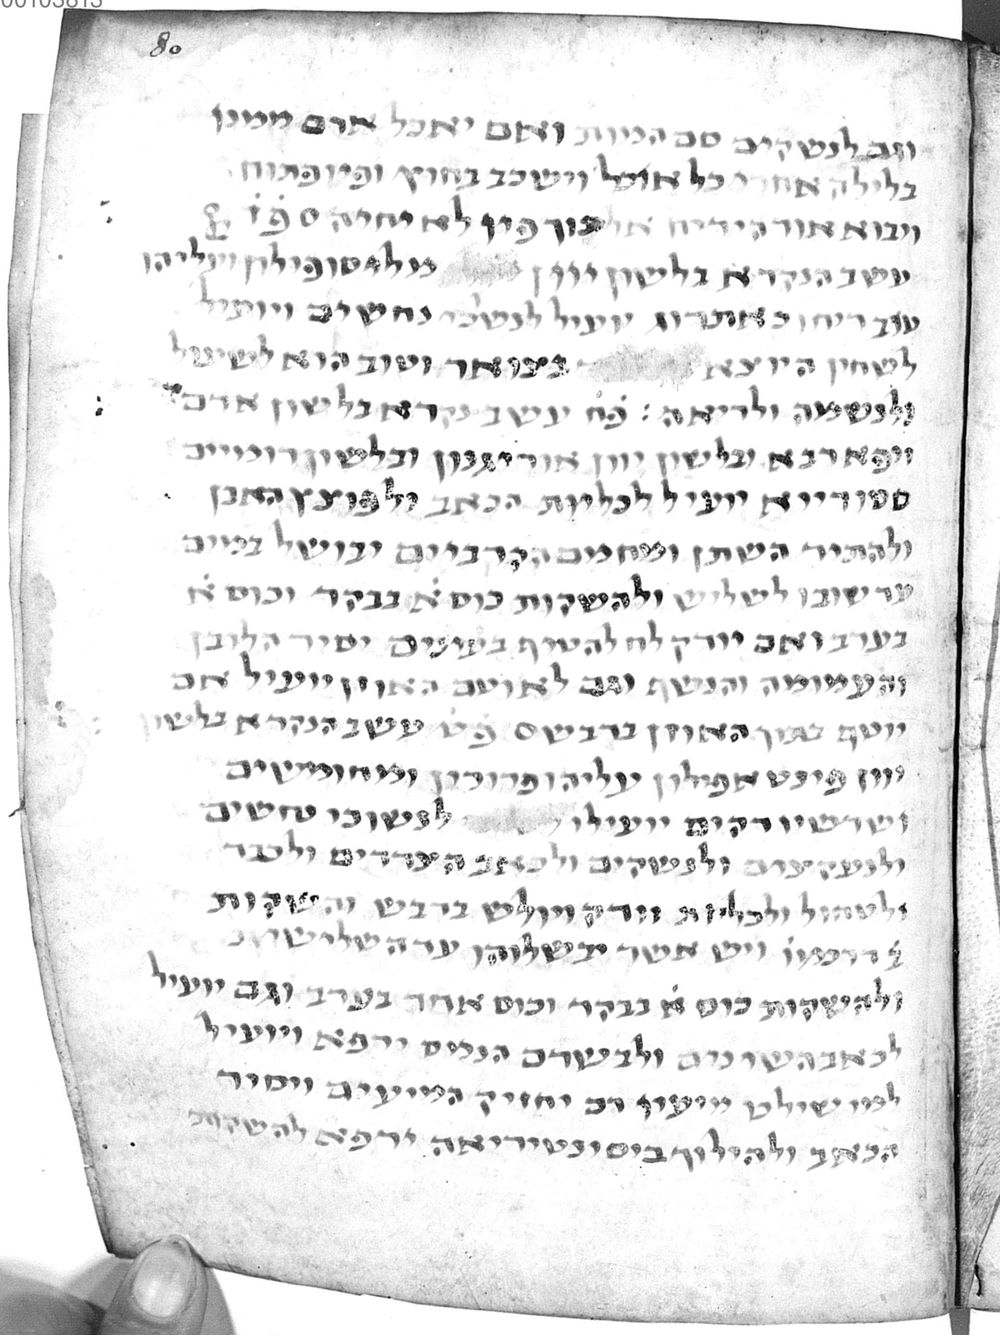 00103813
80
וגם לנשקים סם המות ואם יאכל אדם ממנו
בלילה אחרי כל אוכל וישכב בחוץ ופיו פתוח
ויבוא אור הירח אל תוך פיו לא יחיה
עשב הנקרא בלשון יוון עליהו
ריחו כאתרוג יועיל לנשוכי נחשים ויועיל
לשחין היוצא בצואר וטוב הוא לשיעול
ולנשמה ולריאה : עשב נקרא בלשון ארם
ובלשון יוון אוריגנון ובלשון רומיים
יועיל לכליות הכאב ולפוצץ האבן
ולהתיר השתן ומחמם הקרביים יבושל במים
עד שובו לשליש ולהשקות כוס א בבקר וכוס א
בערב ואם יורק לח להטיף בעינים יסיר הלובן
והעמומה והנשף וגם לאוטם האוזן יועיל אם
יוטף בתוך האוזן בדבש עשב הנקרא בלשון
יוון עליה ופרוכין ומחומשים
ושרשיו דקים יועילו לנשוכי נחשים
ולנעקצים ולנשקים ולכאב הצדדים ולכבד
ולטחול ולכליות וילוש בדבש והשקות
ויש אשר יבשלוהו עד השלישו
ולהשקות כוס א בבקר וכוס אחד בערב וגם יועיל
לכאב השינים ולבשרם הנמס ירפא ויועיל
למי שילט מיעיו רם יחזיק המיעים ויסיר
הכאב ולהילוך ירפא להשקות